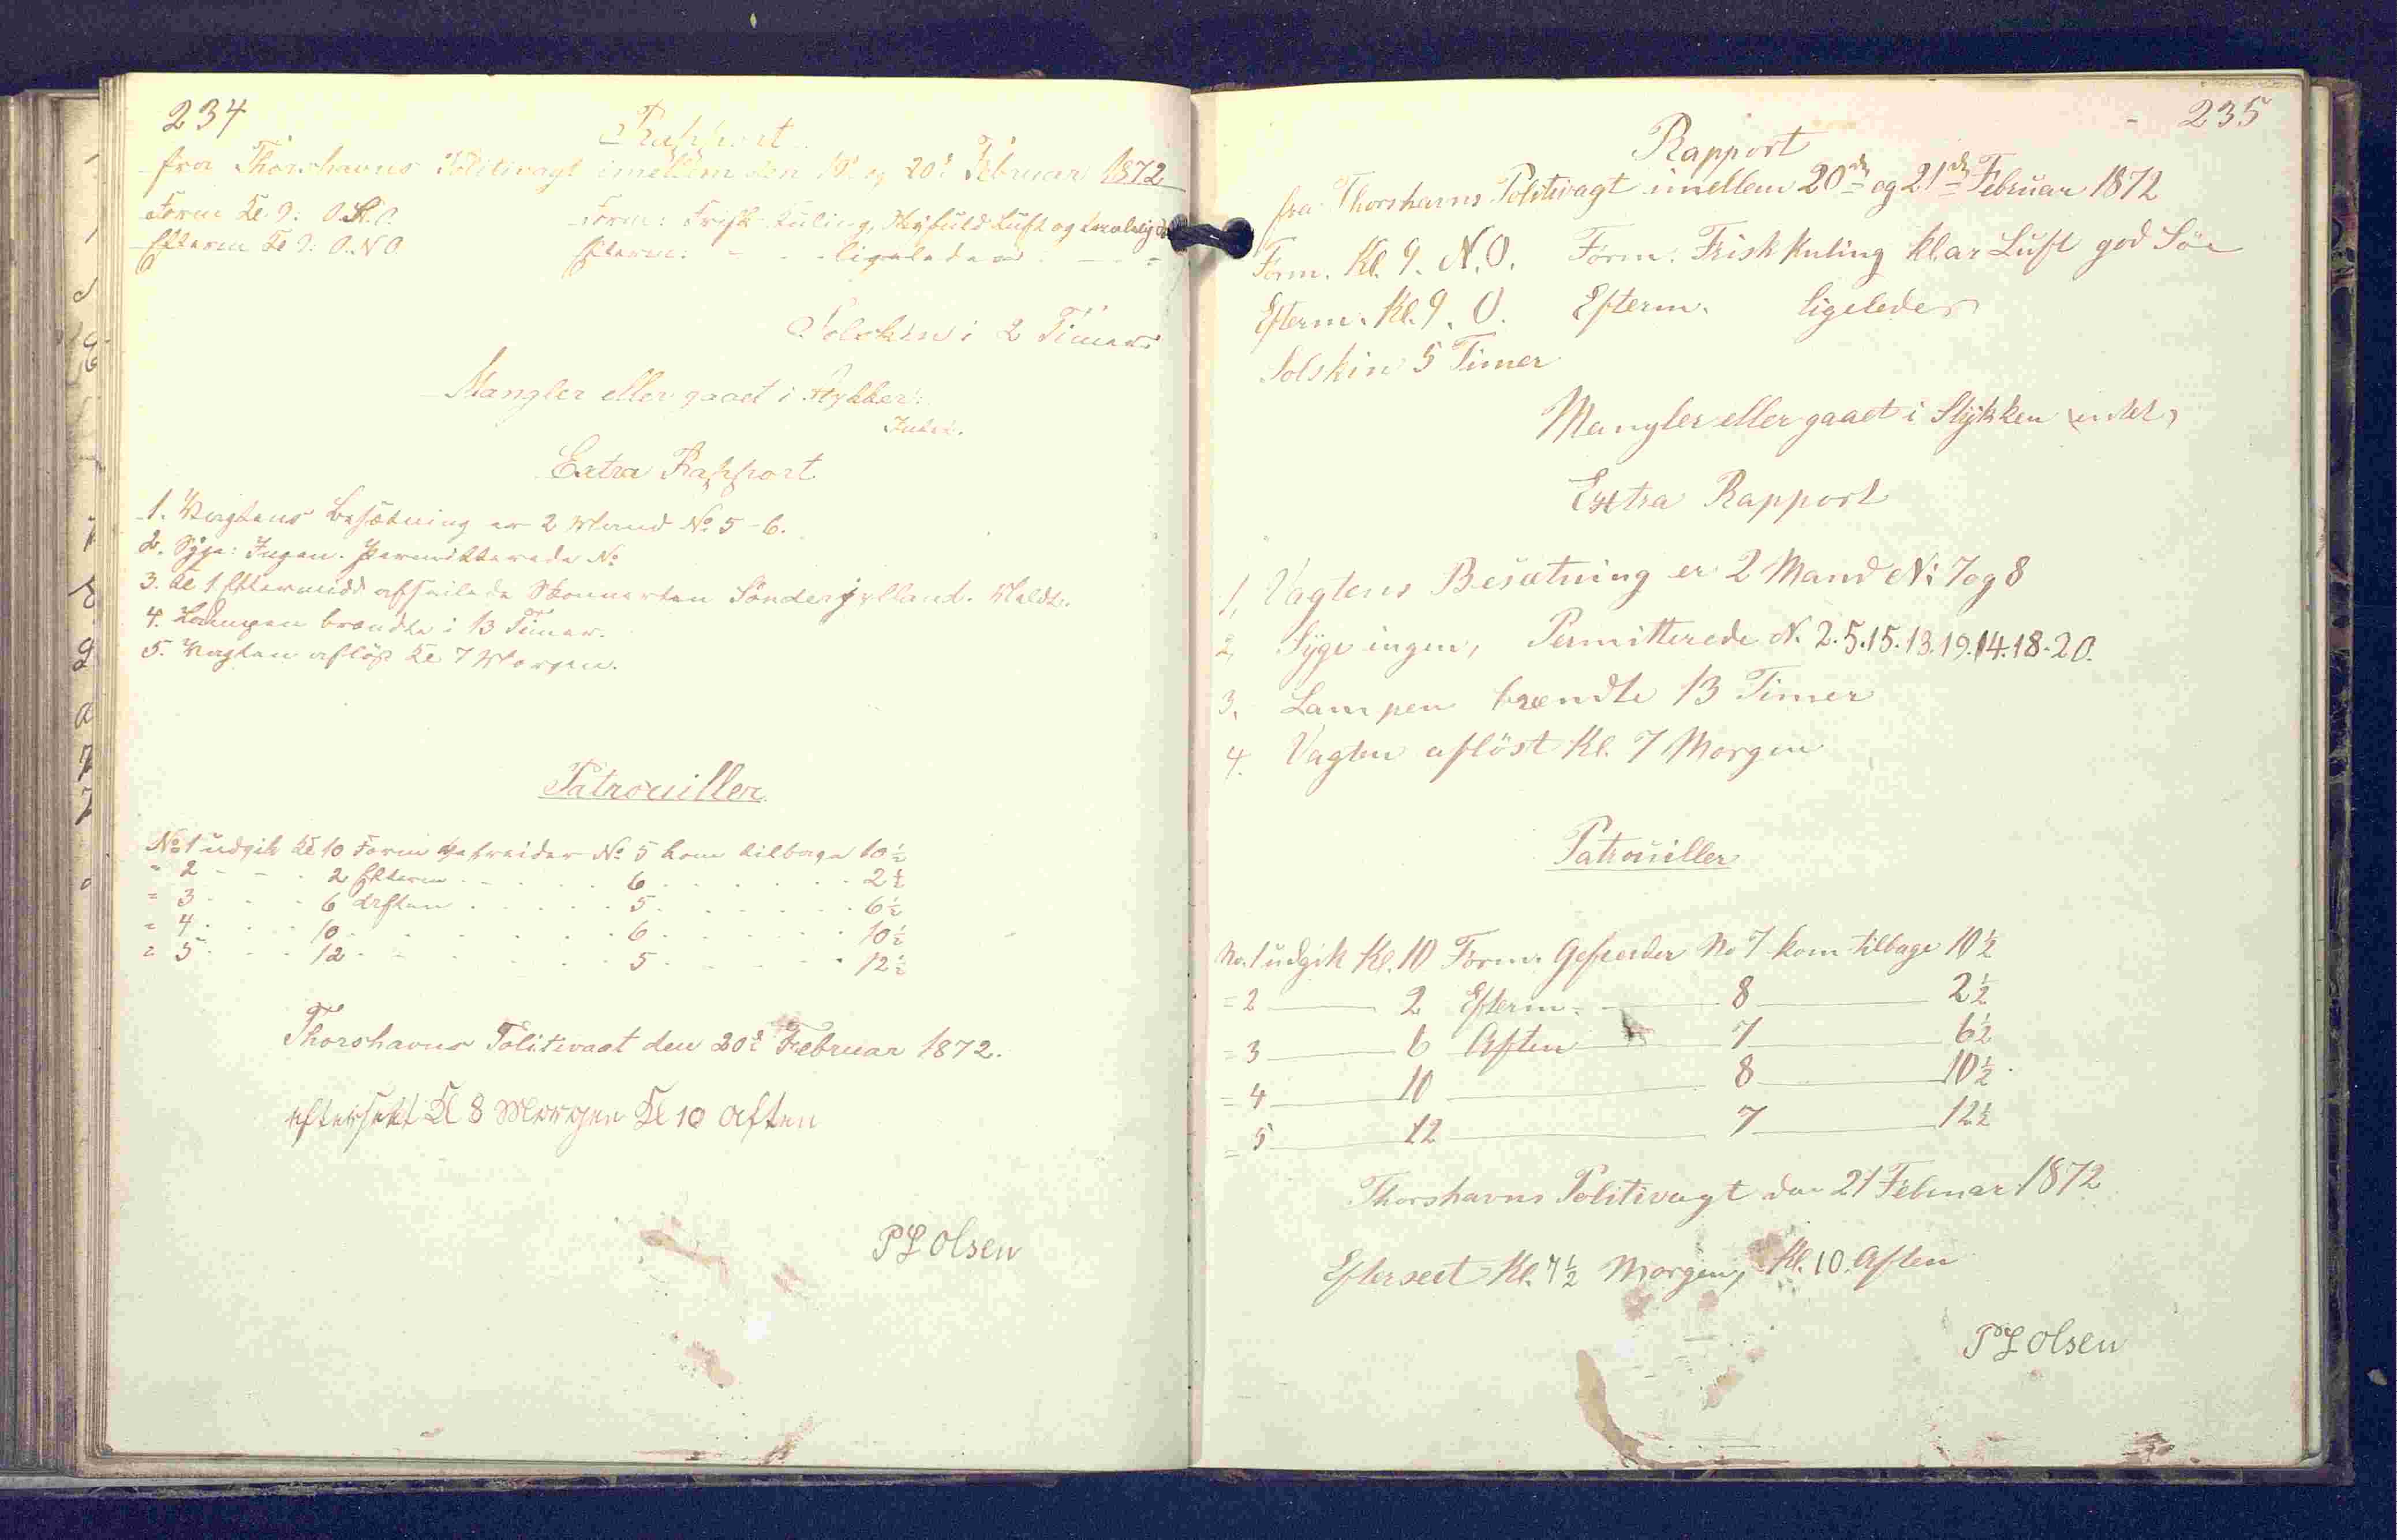 234
Rapport
fra Thorshavns Politivagt imellem den 19d og 20d Februar 1872
Form Kl 9: O.N.O. Form: Frisk Kuling, Skyfuld Luft og temelig
Efterm Kl 9: O.N.O Efterm: - - - ligeledes - - -
Solskin i 2 Timer
Mangler eller gaaet i Stykker:
Intet.
Extra Rapport
1. Vagtens besætning er 2 Mand No 5-6.
2. Syge: Ingen. Permitterede No
3. Kl 1 Eftermidd afseilede Skonnerten Sønderjylland.
4. Lampen brændte i 13 Timer.
5. Vagten afløst Kl 7 Morgen.
Patrouiller
No 1 udgik Kl 10 Form Gefreider No 5 kom tilbage 10½
" 2 - - - 2 Efterm - - - 6 - - - 2½
" 3 - - - 6 Aften - - - 5 - - - 6½
" 4 - - - 10 - - - 6 - - - 10½
" 5 - - - 12 - - - 5 - - - 12½
Thorshavns Politivagt den 20d Februar 1872.
efterseet Kl 8 Morgen Kl 10 Aften
P L Olsen
235
Rapport
fra Thorshavns Politivagt imellem 20de og 21de Februar 1872
Form. Kl. 9. N.O. Form. Frisk Kuling klar Luft god Söe
Efterm. Kl. 9. O. Efterm. ligeledes
Solskin 5 Timer
Mangler eller gaaet i Stykken intet
Extra Rapport
1, Vagtens Besætning er 2 Mand No 7 og 8
2, Syge ingen, Permitterede N. 2.5.15.13.19.14.18.20.
3, Lampen brændte 13 Timer
4. Vagten aflöst Kl. 7 Morgen
Patrouiller
No. 1 udgik Kl. 10 Form. Gefreider No 7 kom tilbage 10½
= 2 — 2 Efterm. — 8 — 2½
= 3 — 6 Aften — 7 — 6½
= 4 — 10 — 8 — 10½
= 5 — 12 — 7 — 12½
Thorshavns Politivagt den 21 Februar 1872
Efterseet Kl. 7½ Morgen, Kl. 10. Aften
P L Olsen